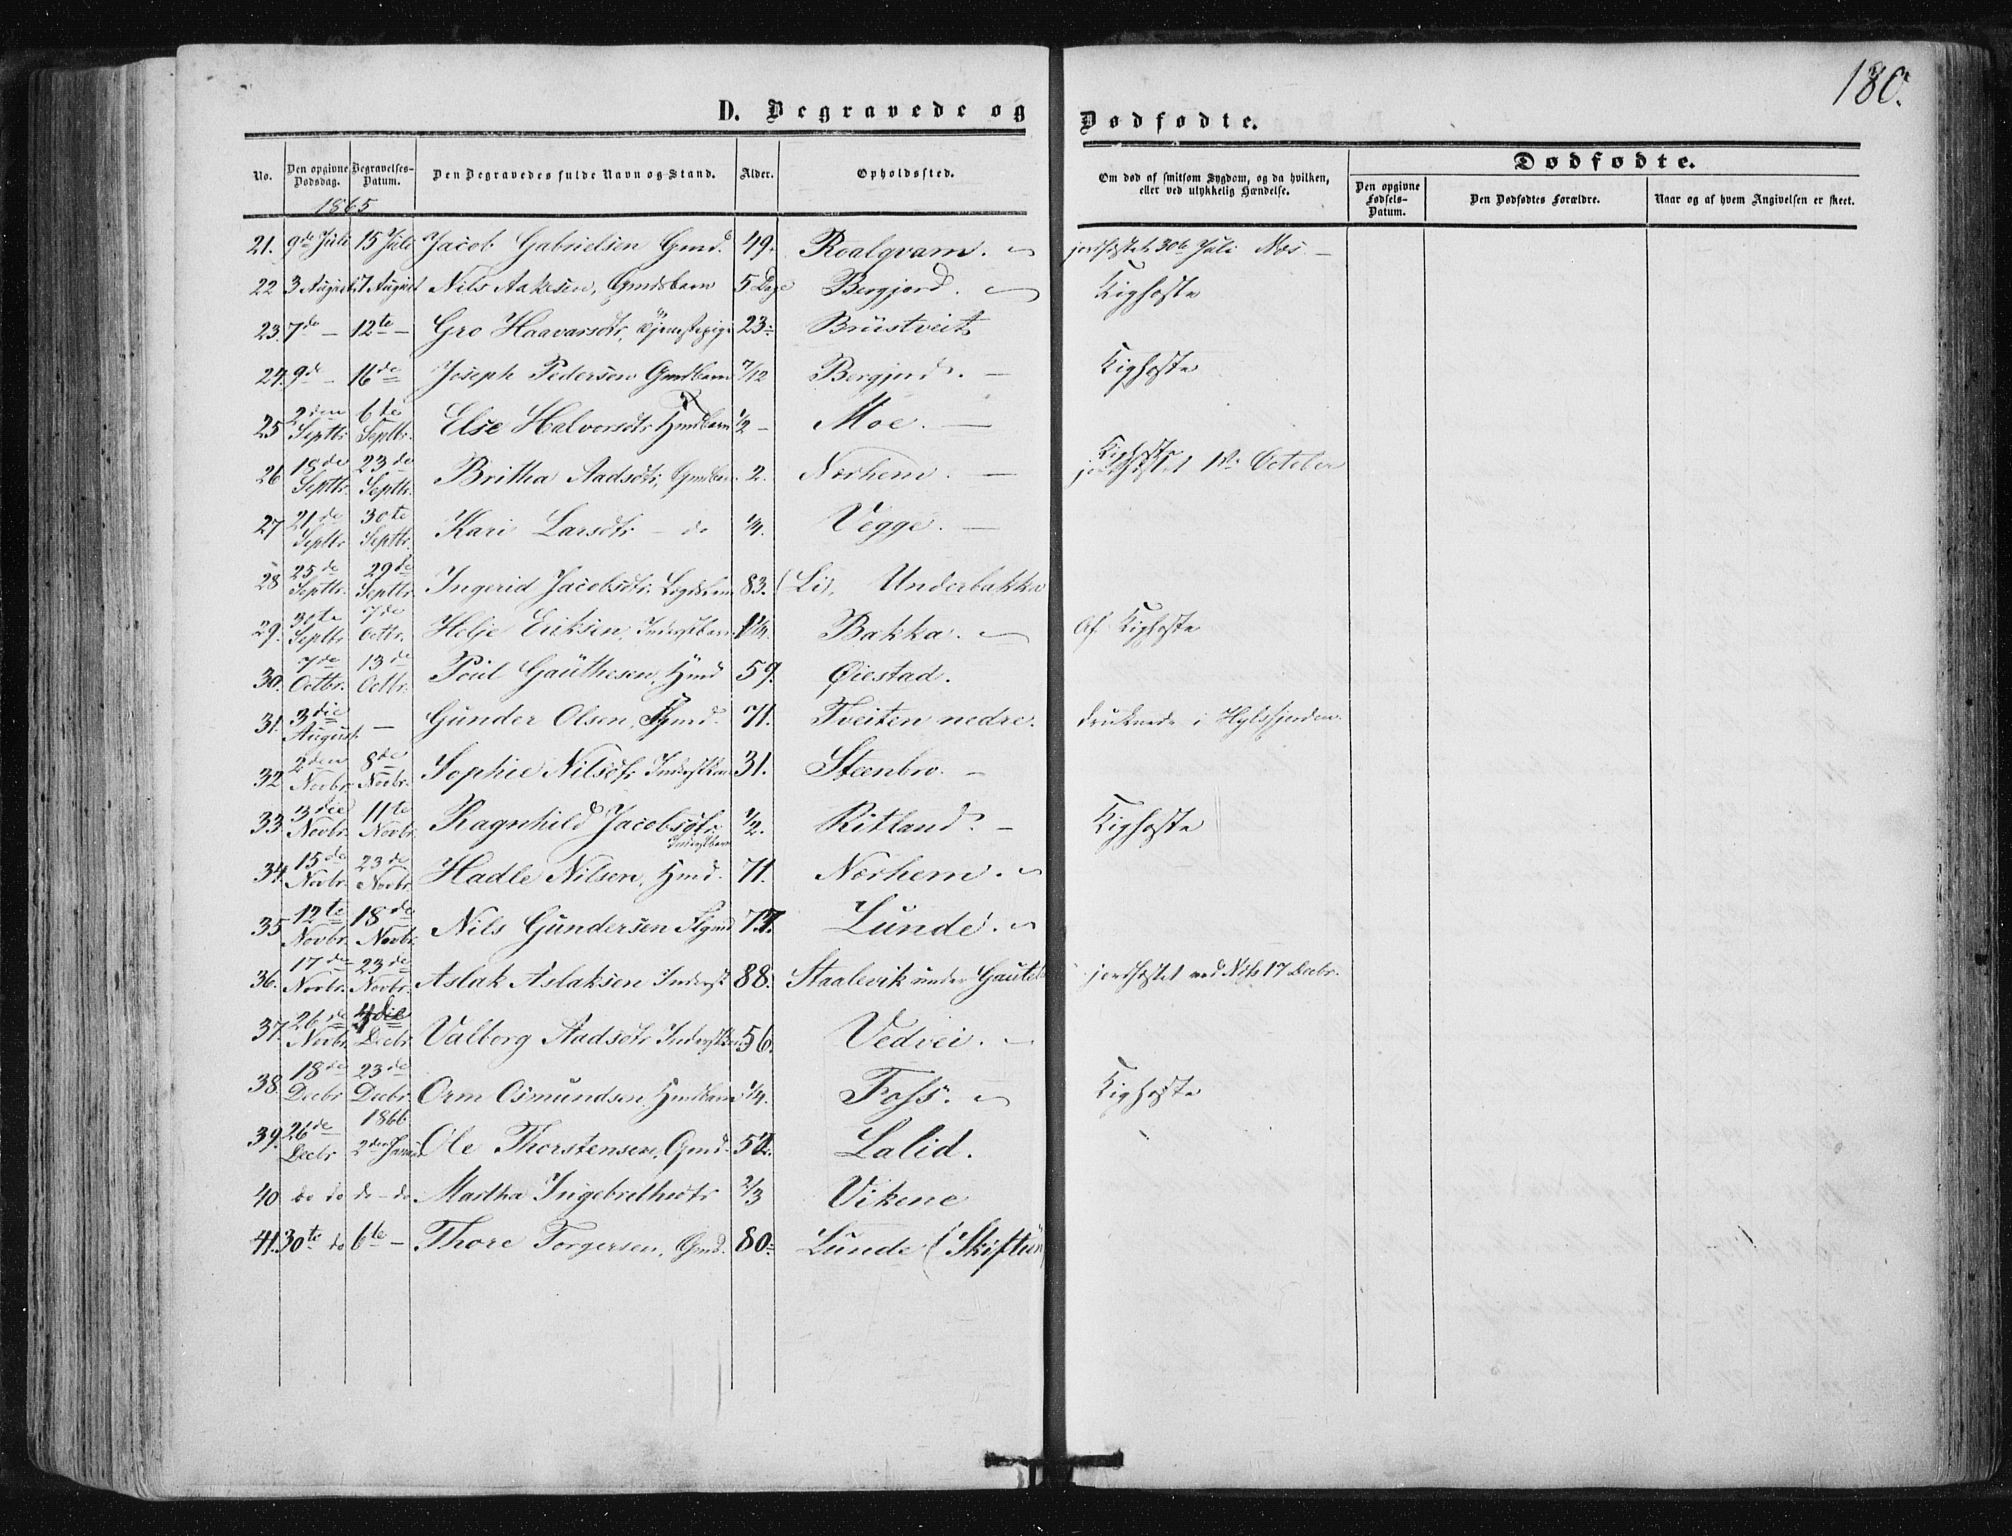 180.
D. Begravede og Dødfødte.
No. Den opgivne Dødsdag. Begravelses-Datum. Den Begravedes fulde Navn og Stand. Alder. Opholdssted. Om død af smitsom Sygdom, og da hvilken, eller ved ulykkelig Hændelse.
Dødfødte.
Den opgivne Fødsels-Datum. Den Dødfødtes Forældre. Naar og af hvem Angivelsen er skeet.
1865
21. 9de Juli 15 Juli Jacob Gabrielsen Gmd. 49. Roalqvam. jordfæstet 30te Juli Næs. –
22 3 August 7 August Nils Aakesen, Gmdsbarn 5 Dage Bergjord. Kighoste
23. 7de – 12te – Gro Haavarsdtr, Tjenestepige 23 Brüstveit
24. 9de – 16de Joseph Pedersen Gmdbarn 7/12 Bergjord. – Kighoste
25 2den Septbr. 6te Septbr. Else Halvorsdtr Hmdbarn 1/2 – Moe. –
26 18de Septbr. 23de Septbr. Britha Aadsdtr, Gmdbarn. 2. Nærhem. – Kighoste jordfæstet 1ste October
27 21de Septbr 30te Septbr. Kari Larsdtr – do 1/4. Vegge. –
28 25de Septbr. 29de Septbr. Ingerid Jacobsdtr. Lægdslem 83. (Li). Underbakka
29. 30te Septbr 7de Octbr. Helje Eriksen, Inderstbarn 1/4. Bakka. Af Kighoste
30. 7de Octbr. 13de Octbr. Poul Gauthesen, Hmd 59. Øiestad.
31. 3die August – Gunder Olsen, Fgmd. 71. Tveiten nedre. druknede i Hylsfjorden.
32 2den Novbr 8de Novbr. Sophie Nilsdtr Inderstkone 31. Steenbro. –
33. 3die Novbr. 11te Novbr. Ragnhild Jacobsdtr Inderstbarn 1/2. Ritland. – Kighoste
34. 15de Novbr. 23de Novbr. Hadle Nilsen, Hmd. 71. Nærhem.
35 12te Novbr. 18de Novbr. Nils Gundersen Fgmd 77. Lunde.
36. 17de Novbr. 23de Novbr. Aslak Aslaksen Inderst 88. Staalevik under Gautel jordfæstet ved Næs 17 Decbr.
37. 26de Novbr. Decbr. Valborg Aadsdtr Inderst 56. Vedvei. –
38. 18de Decbr 23de Decbr. Orm Osmundsen Hmdbarn 1/4. Foss. Kighoste
39. 26de Decbr 1866 2den Januar Ole Thorstensen, Gmd. 52. Lalid.
40 do do do – do Martha Ingebrethsdtr 2/3 Vikene
41. 30te do 6te – Thore Torgersen, Gmd. 80. Lunde (Skiftun)